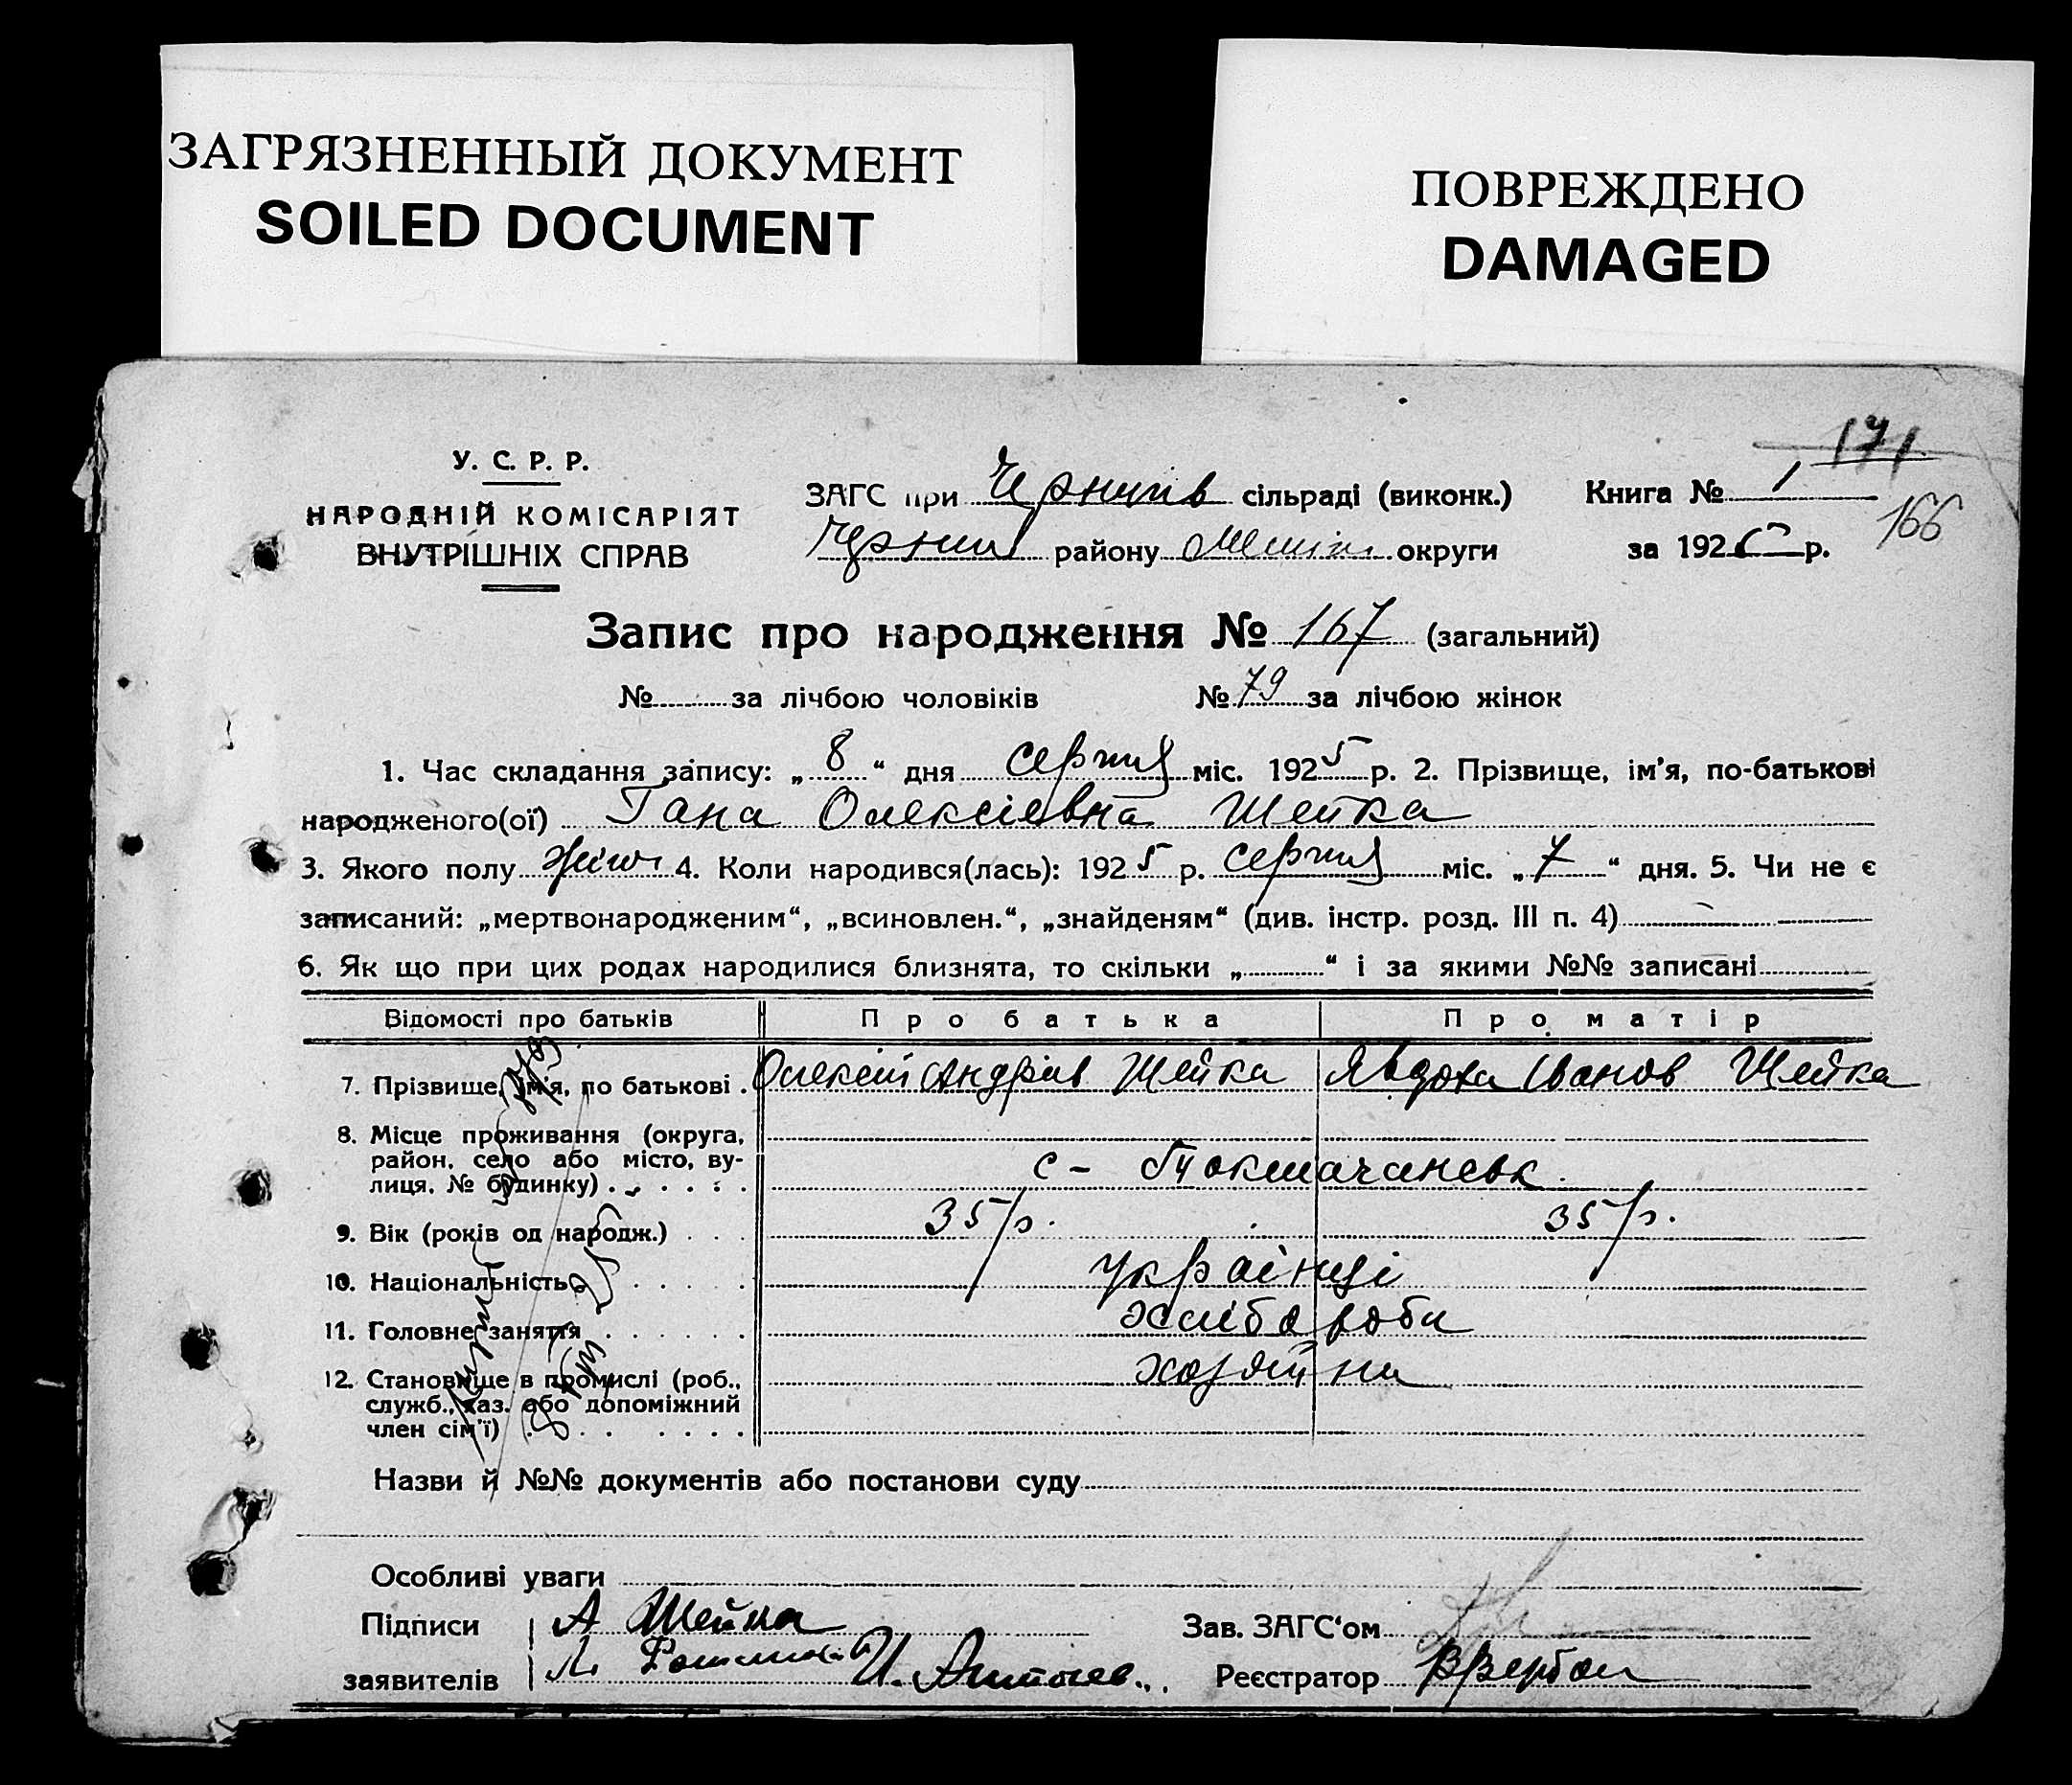 ЗАГРЯЗНЕННЫЙ ДОКУМЕНТ
SOILED DOCUMENT
ПОВРЕЖДЕНО
DAMAGED
171
166
У. С. Р. Р.
НАРОДНІЙ КОМІСАРІЯТ
ВНУТРІШНІХ СПРАВ
ЗАГС при Чернигів сільраді (виконк.)
Книга № 1
району округи
за 1925 р.
Запис про народження № 167 (загальний)
№ за лічбою чоловіків № 79 за лічбою жінок
1. Час складання запису: „8“ дня серпня міс. 1925 р. 2. Прізвище, ім'я, по-батькові
народженого(ої) Гана Олексіевна Шейка
3. Якого полу жіноч 4. Коли народився(лась): 1925 р. серпня міс. „7“ дня. 5. Чи не є
записаний: „мертвонародженим“, „всиновлен.“, „знайденям“ (див. інстр. розд. III п. 4) —
6. Як що при цих родах народилися близнята, то скільки „ “ і за якими №№ записані
Відомості про батьків Про батька Про матір
7. Прізвище, ім'я, по батькові . Олексій Андрів Шейка Явдоха Іванов Шейка
8. Місце проживання (округа,
район, село або місто, ву-
лиця, № будинку) . . . . . . с-
9. Вік (років од народж.) . . . 35 р. 35 р.
10. Національність . . . . . українці
11. Головне заняття . . . . . . хлібороби
12. Становище в промислі (роб.,
служб., хаз. або допоміжний
член сім'ї) . . . . . . . хозяйни
Назви й №№ документів або постанови суду
Особливі уваги
Підписи А Шейка Зав. ЗАГС'ом
заявителів И. Реєстратор